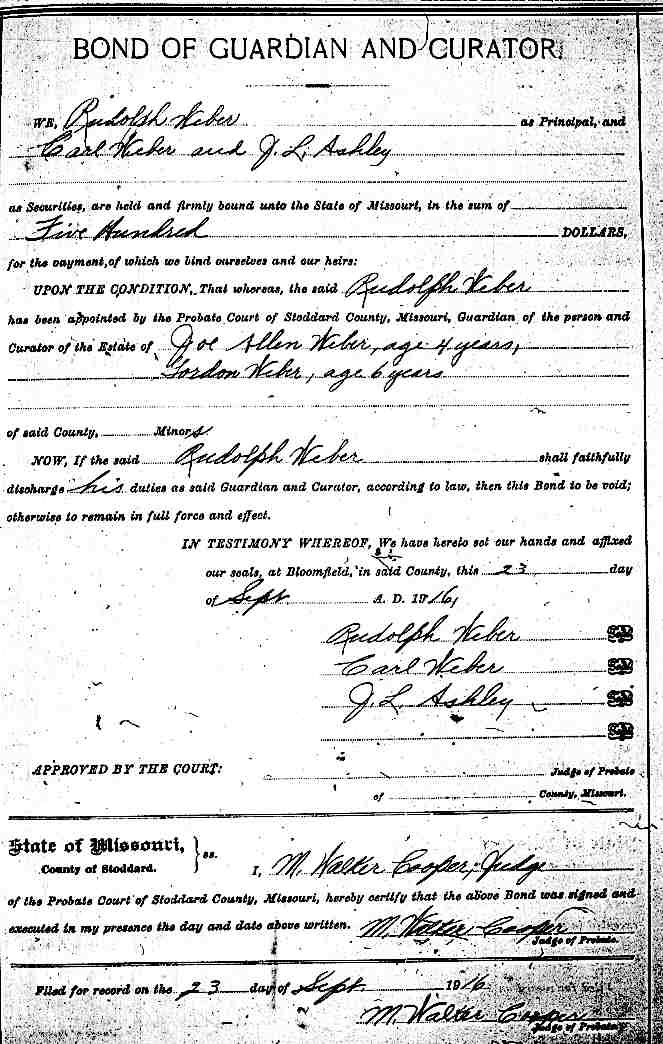 BOND OF GUARDIAN AND CURATOR.
WE, Rudolph Weber as Principal, and
Carl Weber and J. L. Ashley
as Securities, are held and firmly bound unto the State of Missouri, in the sum of
Five Hundred DOLLARS,
for the payment, of which we bind ourselves and our heirs:
UPON THE CONDITION, That whereas, the said Rudolph Weber
has been appointed by the Probate Court of Stoddard County, Missouri, Guardian of the person and
Curator of the Estate of Joe Allen Weber, age 4 years,
Gordon Weber, age 6 years
of said County, Minors
NOW, If the said Rudolph Weber shall faithfully
discharge his duties as said Guardian and Curator, according to law, then this Bond to be void;
otherwise to remain in full force and effect.
IN TESTIMONY WHEREOF, We have hereto set our hands and affixed
our seals, at Bloomfield, in said County, this 23 day
of Sept. A. D. 1916,
Rudolph Weber
Carl Weber
J. L. Ashley
APPROVED BY THE COURT:
Judge of Probate
of County, Missouri.
State of Missouri,
County of Stoddard. } ss. I, M. Walker Cooper, Judge
of the Probate Court of Stoddard County, Missouri, hereby certify that the above Bond was signed and
executed in my presence the day and date above written. M. Walker Cooper
Judge of Probate.
Filed for record on the 23 day of Sept. 1916
M. Walker Cooper
Judge of Probate